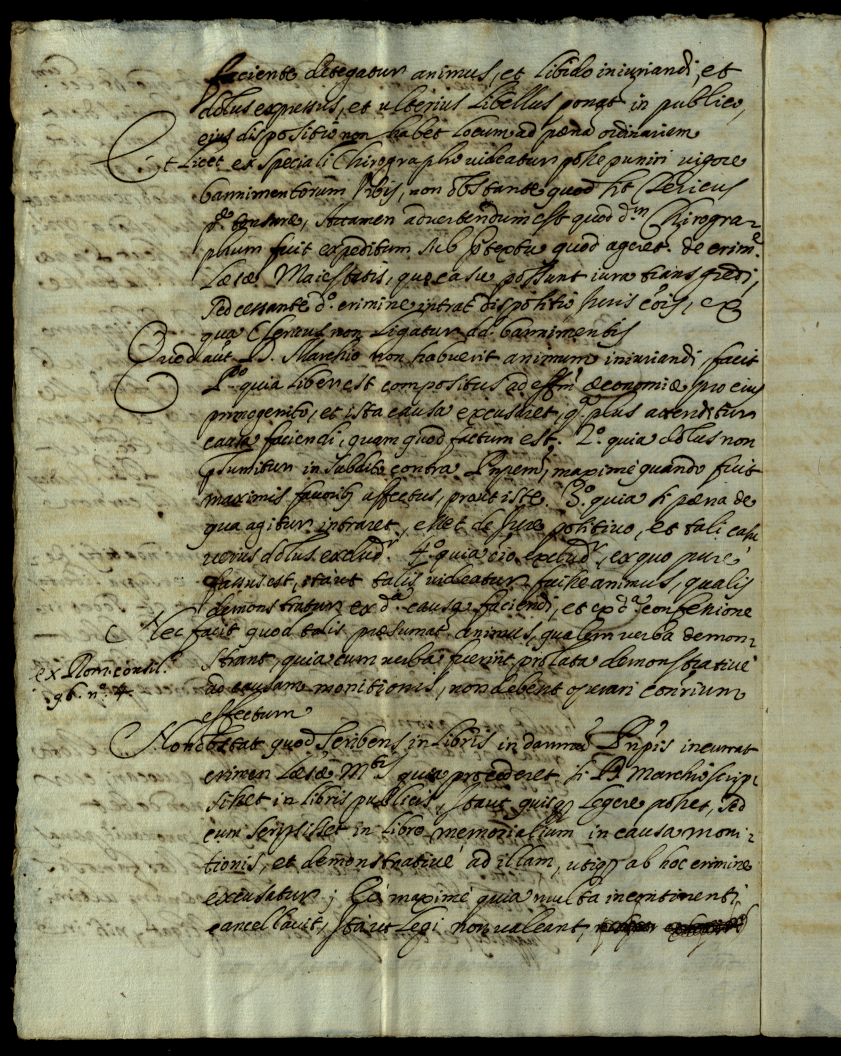 faciente detegatur animus, et libido iniuriandi, et
dolus expressus, et ulterius libellus ponat in publico,
eius dispositio non habet locum ad pœnã ordinariam
Et licet ex speciali Chirographo videatur posse puniri vigore
bannimentorum non obstante quod sit Clericus
pe tonsuræ, Attamen advertendum est quod dm Chirogra=
phum fuit expeditum sub ptextu quod ageret de crime
Læsæ Maiestatis, quo casu possunt iura transgredi,
sed cessante do crimine intrat dispositio Iuris cõis, ex
qua Clericus non ligatur ad bannimentis
Quod aũt D. Marchio non habuerit animum iniuriandi facit
Po quia liber est compositus ad effm œconomiæ pro eius
primogenito, et ista causa excusaret, qa plus attenditur
causa faciendi, quam quod factum est. 2o quia dolus non
psumitur in subdito contra Pnpem, maxime quando fuit
maximis favorib affectus, prout iste. 3o quia si pœna de
qua agitur intraret, esset de Iure positivo, et tali casu
verus dolus exclud. 4o quia exclud, ex quo pure
passus est, itaut talis videatur fuisse animus, qualis
demonstratur ex da causa faciendi, et ex da confessione
Nec facit quod talis præsumat animus, qualem verba demon=
strant, quia cum verba fuerint prolata demonstrative
ex Rom. consil.
96. no. 4
ad causam monitionis, non debent operari conrium
effectum
Non obstat quod scribens in libris in damnũ Pnpis incurrat
crimen læsæ Mtis quia procederet si D. Marchio scrip=
sisset in libris publicis, itaut quisq legere posset, sed
cum scripsisset in libro memorialium in causa moni=
tionis, et demonstrative ad illam, utiq ab hoc crimine
excusatur; Eo maxime quia multa incontinenti
cancellavit, itaut legi non valeant,